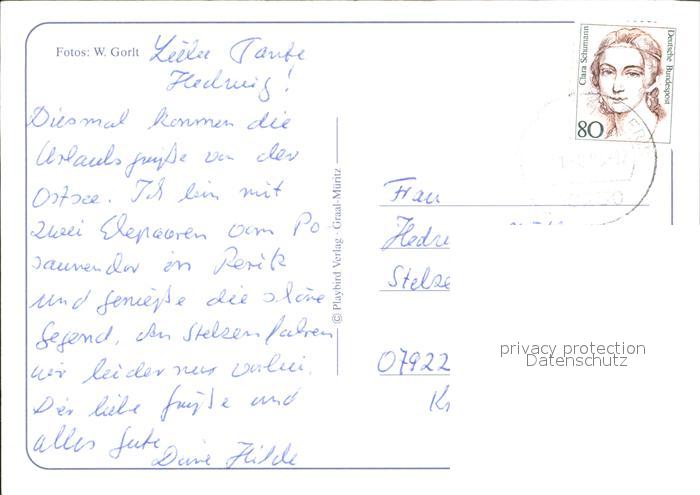 Fotos: W. Gorlt
Liebe Tante
Hedwig!
Diesmal kommen die
Urlaubsgrüße von der
Ostsee. Ich bin mit
zwei Ehepaaren vom Po-
saunenchor in
und genieße die schöne
Gegend. An Stelzen fahren
wir leider nur vorbei.
Dir liebe Grüße und
alles Gute
Deine Hilde
© Playbird Verlag · Graal-Müritz
Clara Schumann
Deutsche Bundespost
80
Frau
Hedw
Stelze
07922
privacy protection
Datenschutz